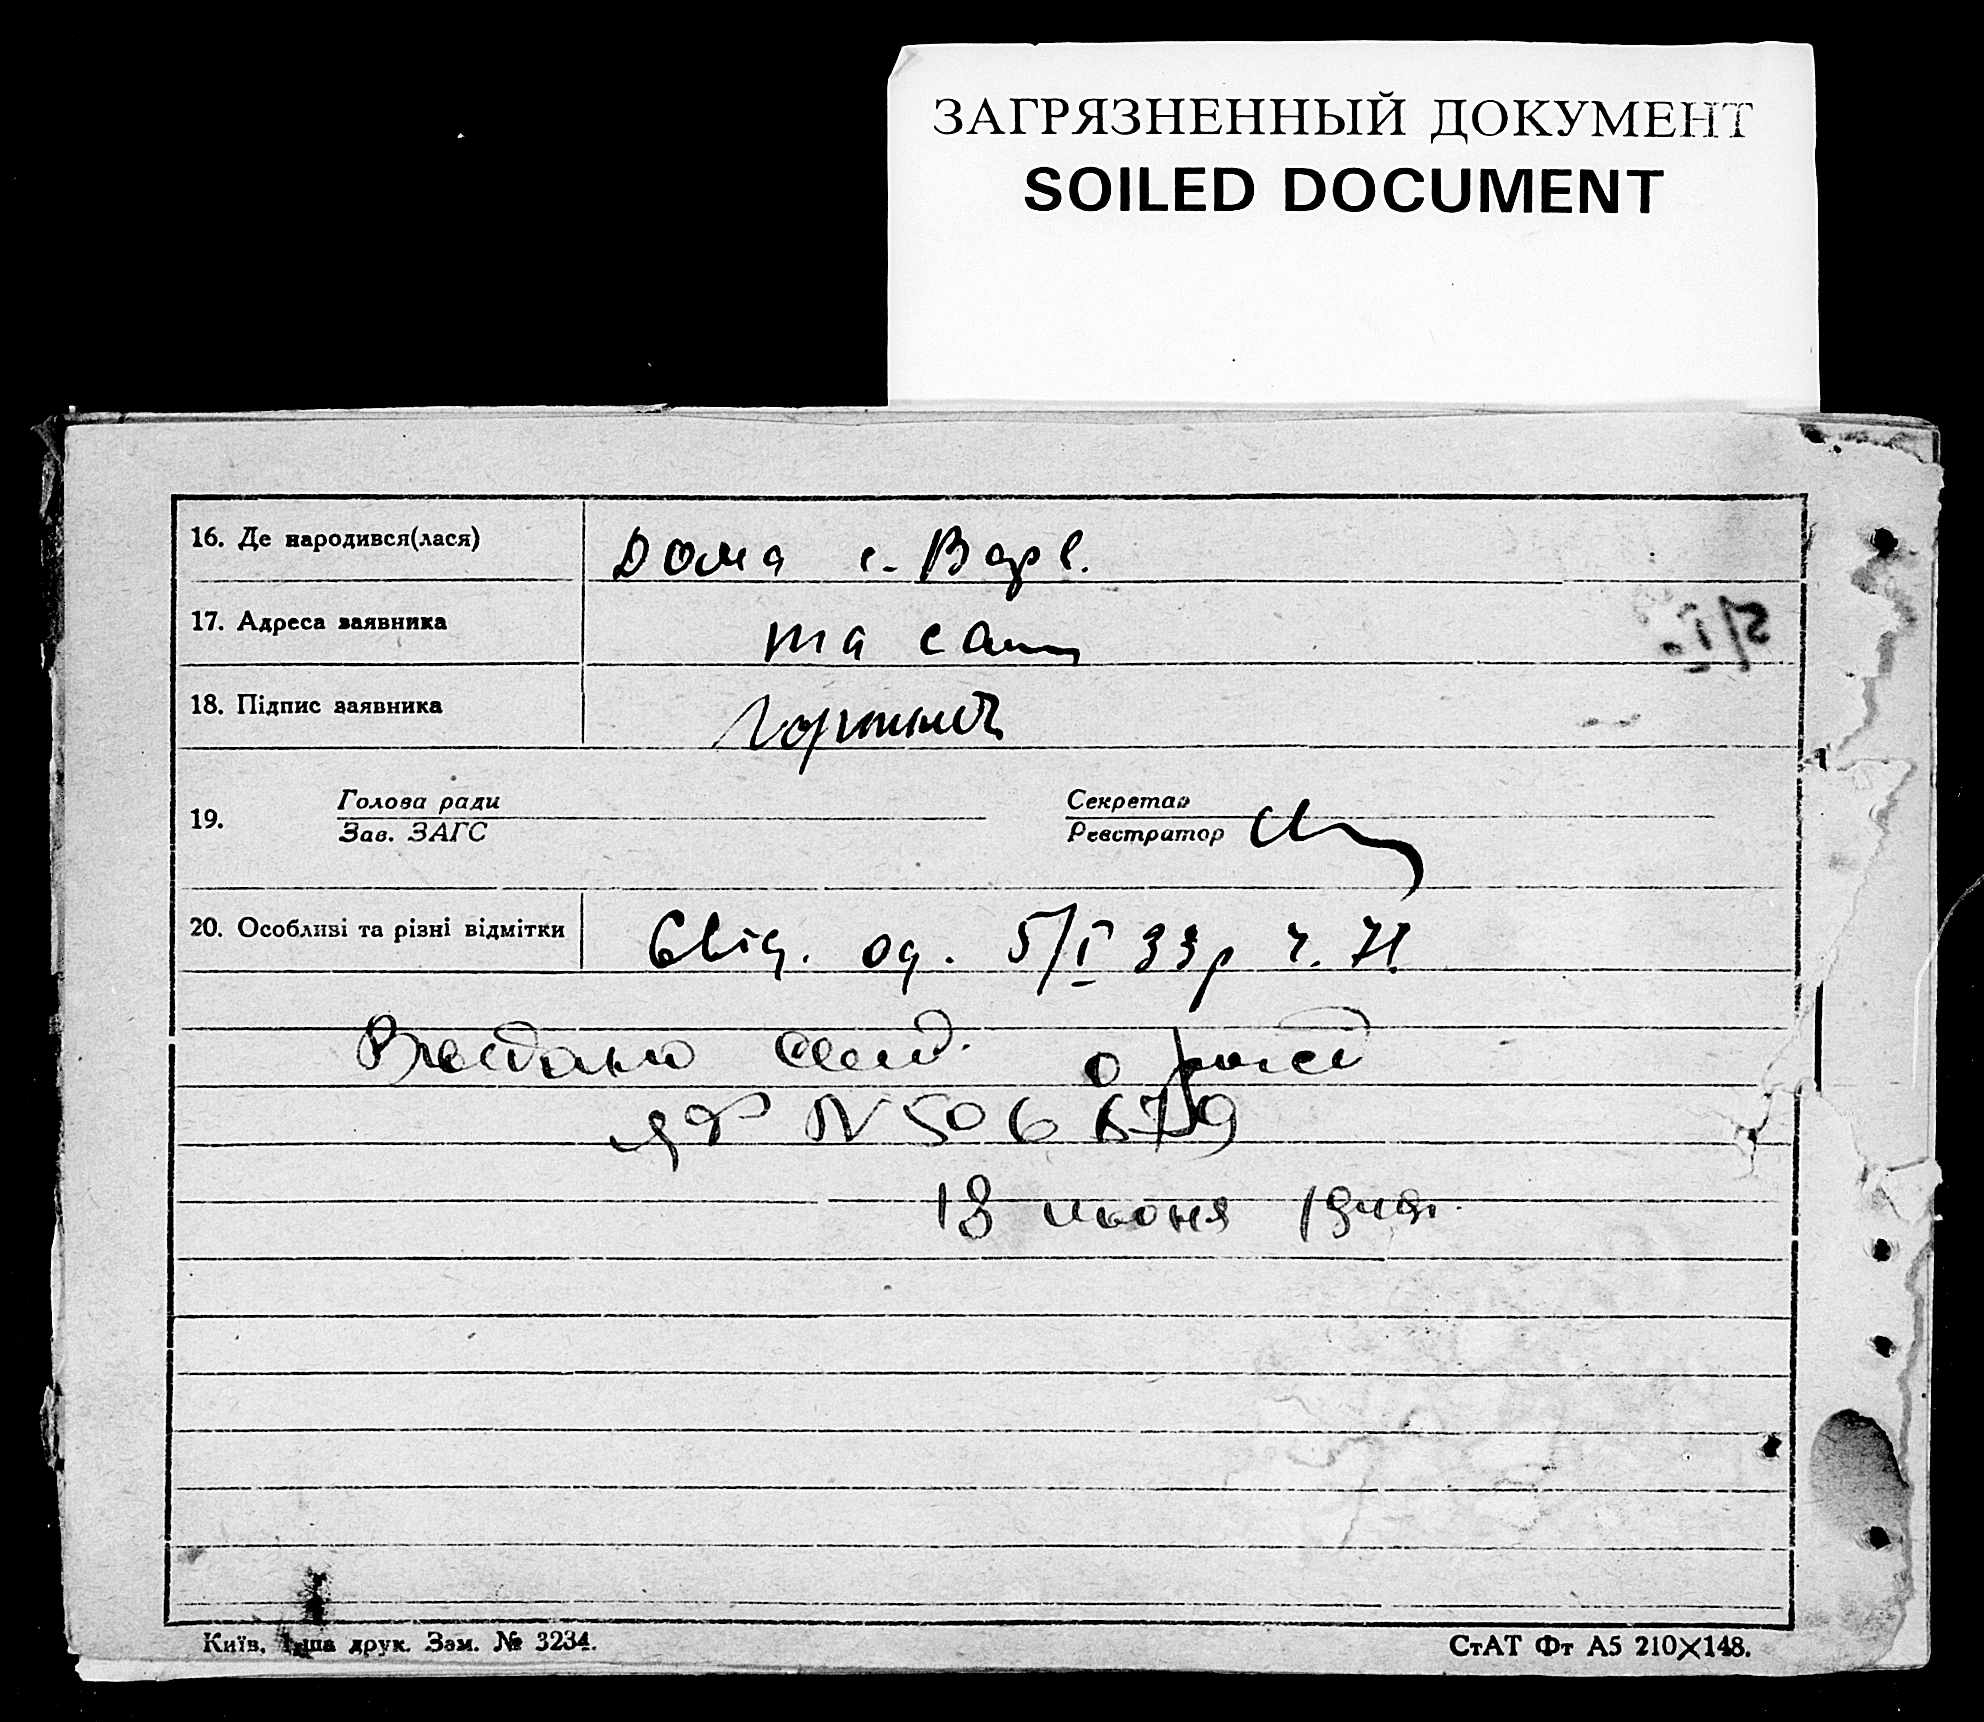 ЗАГРЯЗНЕННЫЙ ДОКУМЕНТ
SOILED DOCUMENT
16. Де народився(лася) Дома с. Варв.
17. Адреса заявника та сама
18. Підпис заявника
19. Голова ради Секретар
Зав. ЗАГС Реєстратор
20. Особливі та різні відмітки Свід. од. 5/I 33р ч. 71
о
N 506679
18 июня
Київ, друк. Зам. № 3234.
СтАТ Фт А5 210×148.
5/I